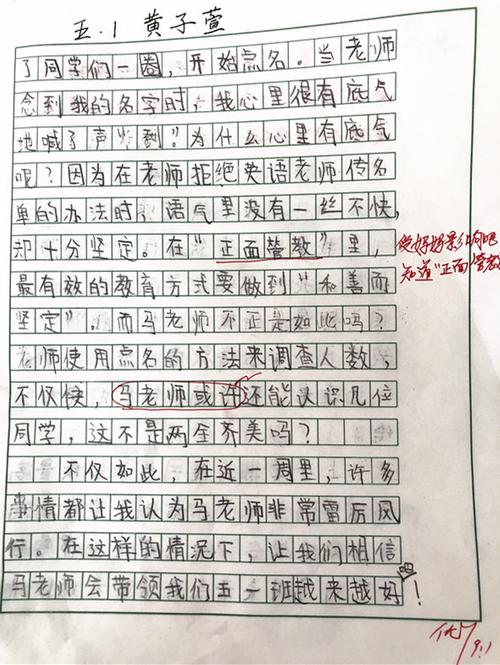 五.1 黄子萱
了同学们一圈，开始点名。当老师
念到我的名字时，我心里很有底气
地喊了声“到”。为什么心里有底气
呢？因为在老师拒绝英语老师传名
单的办法时，语气里没有一丝不快，
却十分坚定。在“正面管教”里，
最有效的教育方式要做到“和善而
坚定”。而马老师不正是如此吗？
老师使用点名的方法来调查人数，
不仅快，马老师或许还能认识几位
同学，这不是两全齐美吗？
不仅如此，在近一周里，许多
事情都让我认为马老师非常雷厉风
行。在这样的情况下，让我们相信
马老师会带领我们五一班越来越好！
知道“正面管教
优
9.1